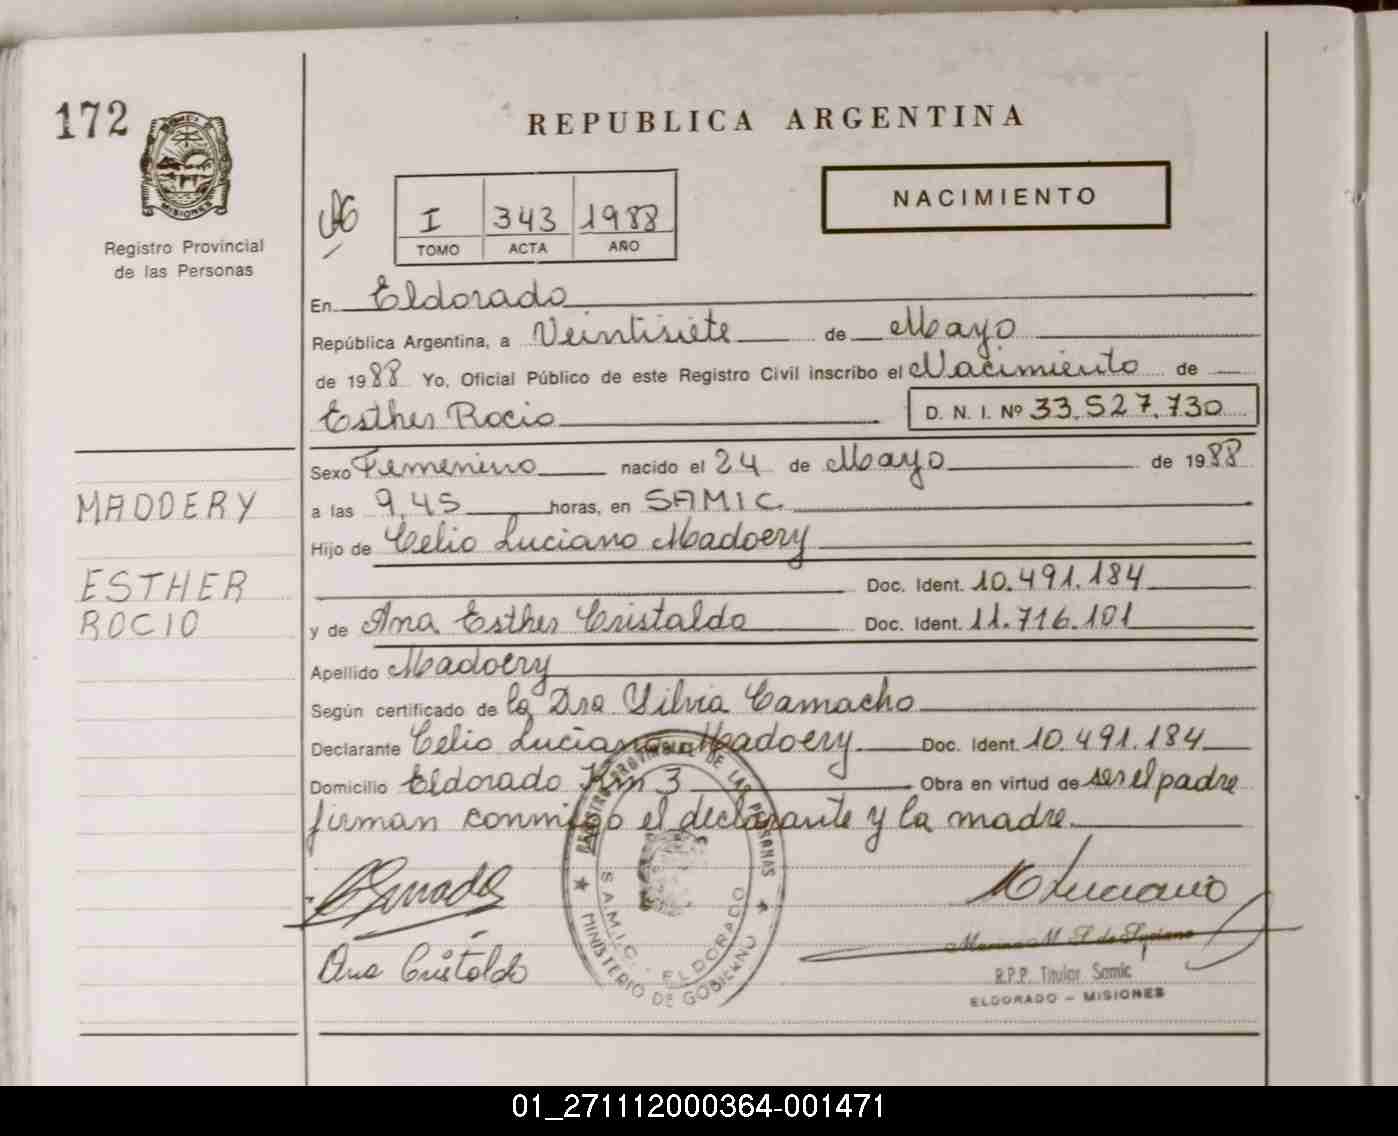 172
REPUBLICA ARGENTINA
NACIMIENTO
MISIONES
Registro Provincial
de las Personas
I 343 1988
TOMO ACTA AÑO
En Eldorado
República Argentina, a Veintisiete de Mayo
de 1988 Yo, Oficial Público de este Registro Civil inscribo el Nacimiento de
Esther Rocio D. N. I. Nº 33.527.730
Sexo Femenino nacido el 24 de Mayo de 1988
MADOERY
a las 9,45 horas, en SAMIC.
Hijo de Celio Luciano Madoery
ESTHER
Doc. Ident. 10.491.184
ROCIO
y de Ana Esther Cristaldo Doc. Ident. 11.716.101
Apellido Madoery
Según certificado de la Dra Silvia Camacho
Declarante Celio Luciano Madoery Doc. Ident. 10.491.184
Domicilio Eldorado Km 3 Obra en virtud de ser el padre
firman conmigo el declarante y la madre.
REGISTRO PROVINCIAL DE LAS PERSONAS
S.A.M.I.C. - ELDORADO
MINISTERIO DE GOBIERNO
Luciano
Ana Cristaldo
R.P.P. Titular Samic
ELDORADO - MISIONES
01_271112000364-001471